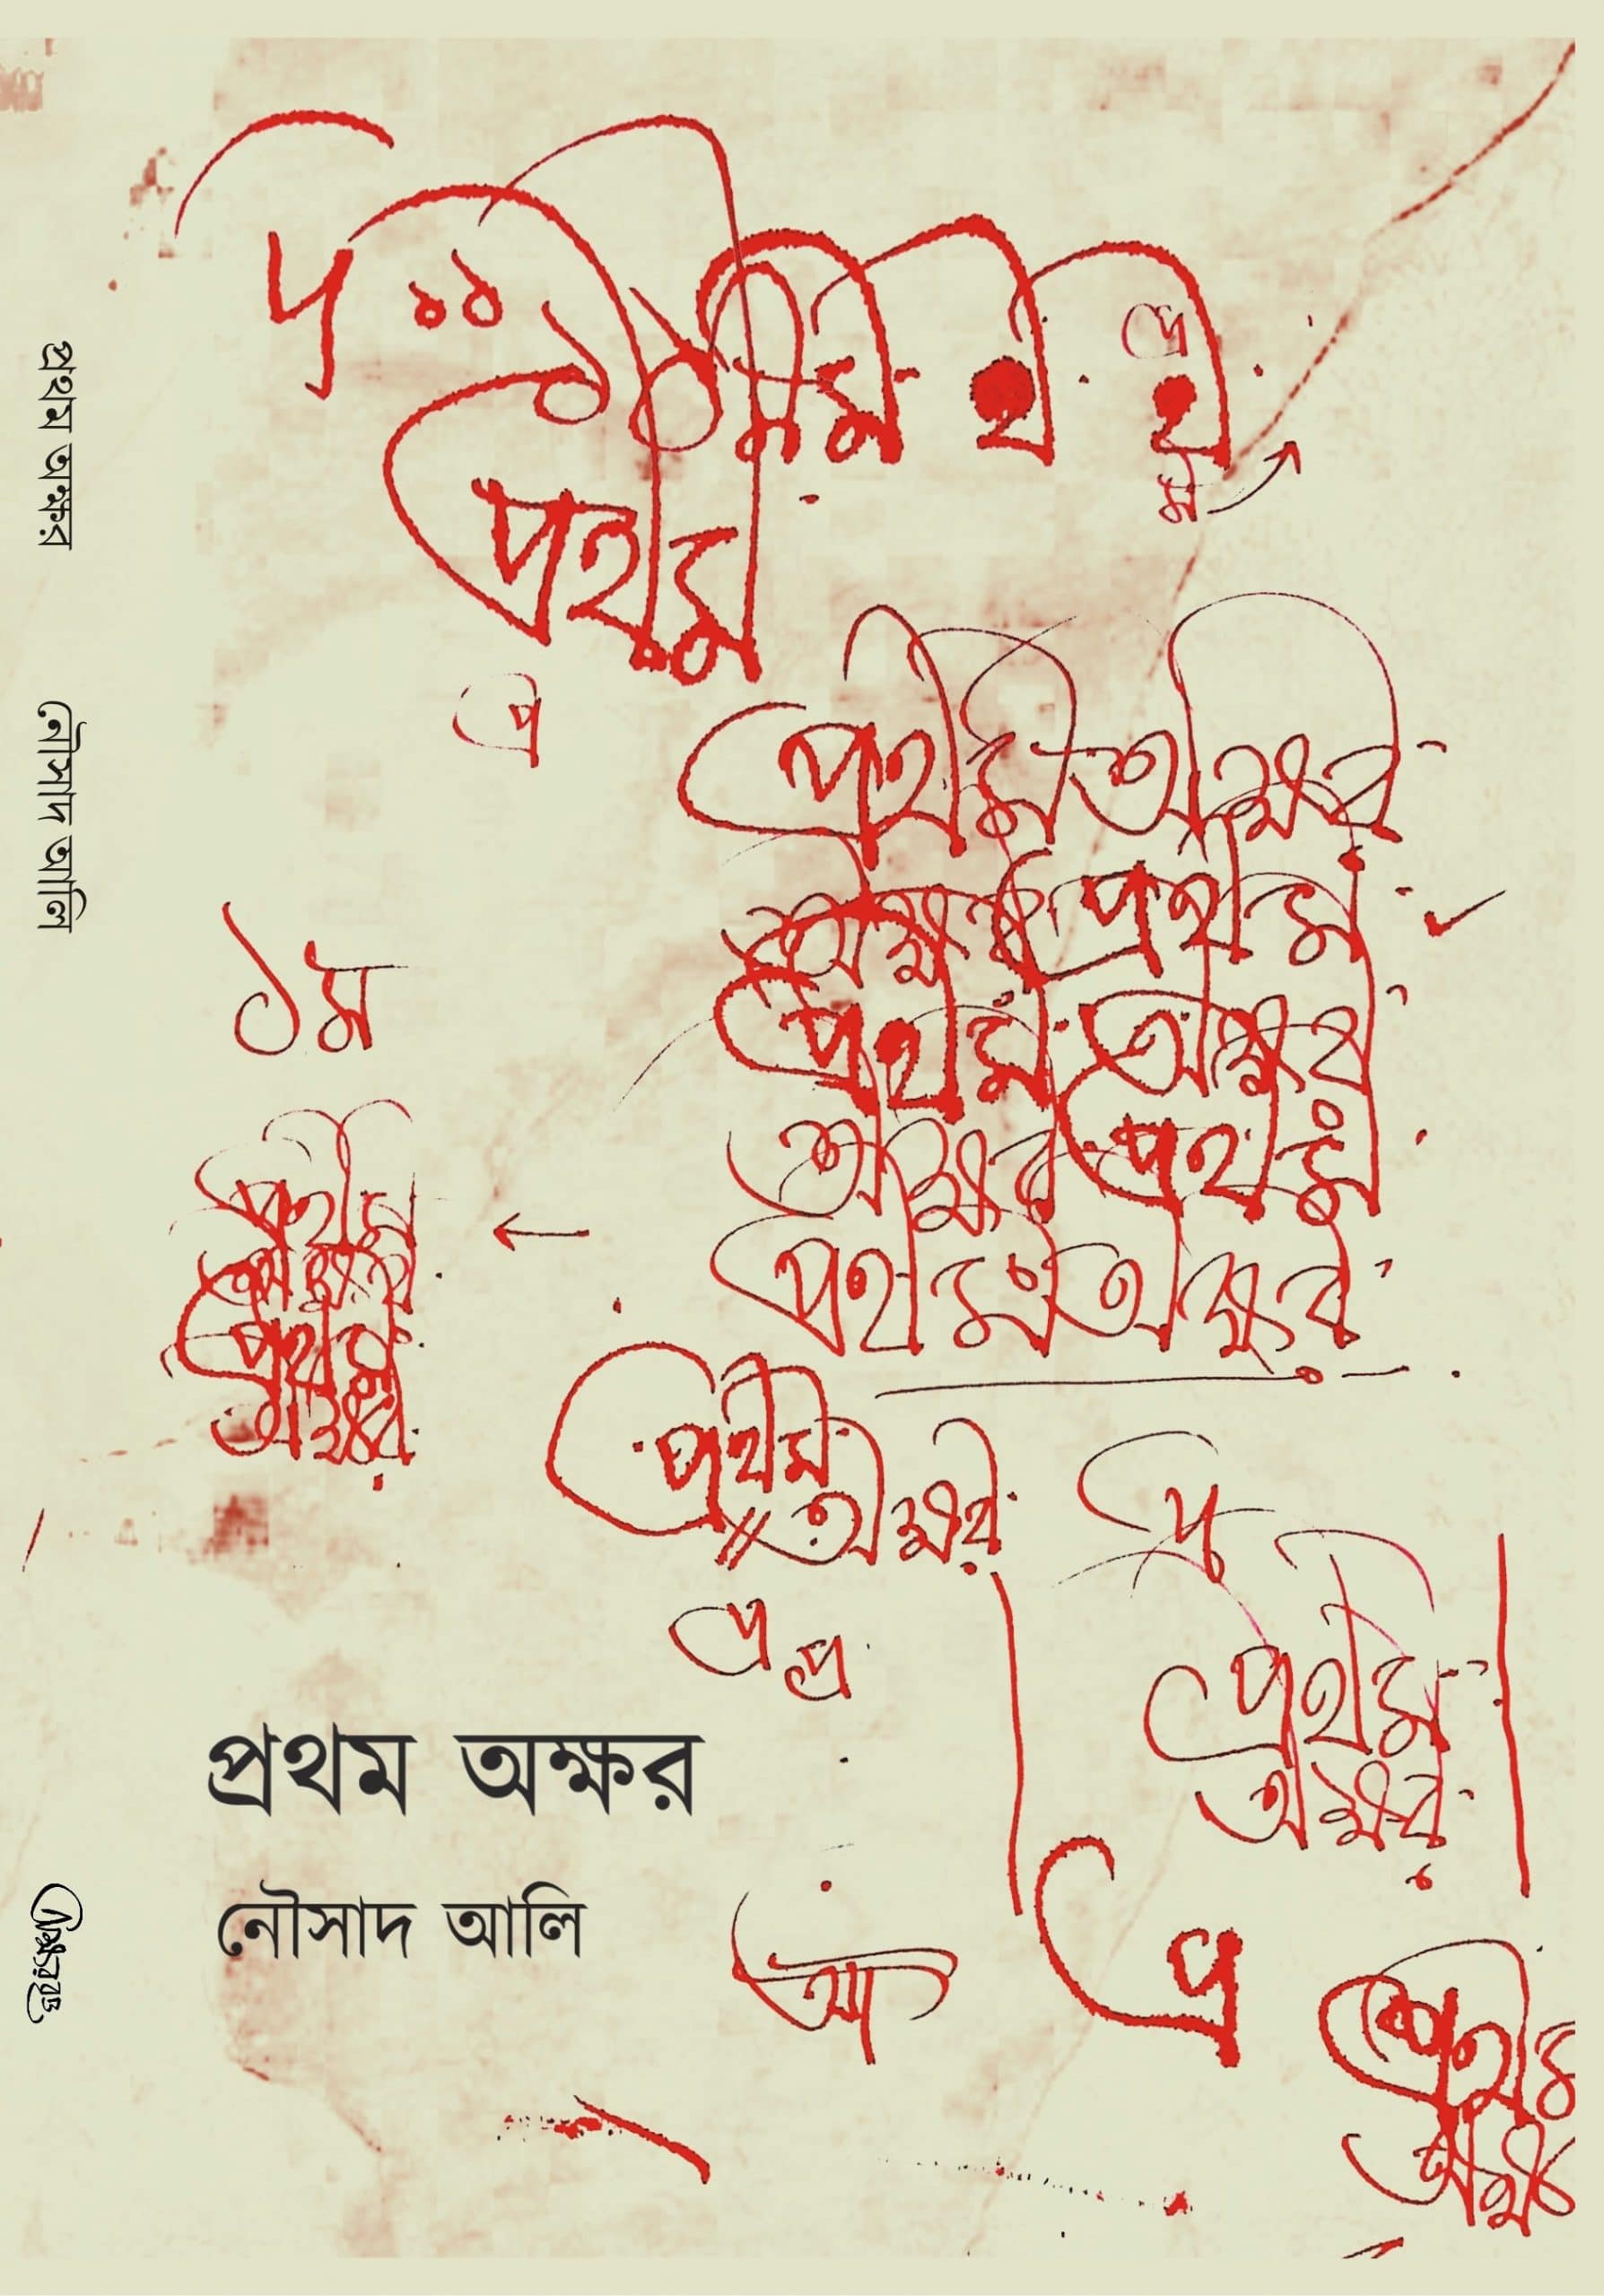 প্রথম অক্ষর
নৌসাদ আলি
প
১১
১১মম থ থ
প্র
ম
প্রথম
প্র
প্রথম অক্ষর
অক্ষর প্রথম
প্রথম অক্ষর
অক্ষর প্রথম
প্রথম অক্ষর
১ম
প্রথম
অক্ষর
প্রথম
অক্ষর
প্রথম
অক্ষর
প্র
প্র প্র
প্রথম
অক্ষর
প্রথম অক্ষর
নৌসাদ আলি
আ
প্র